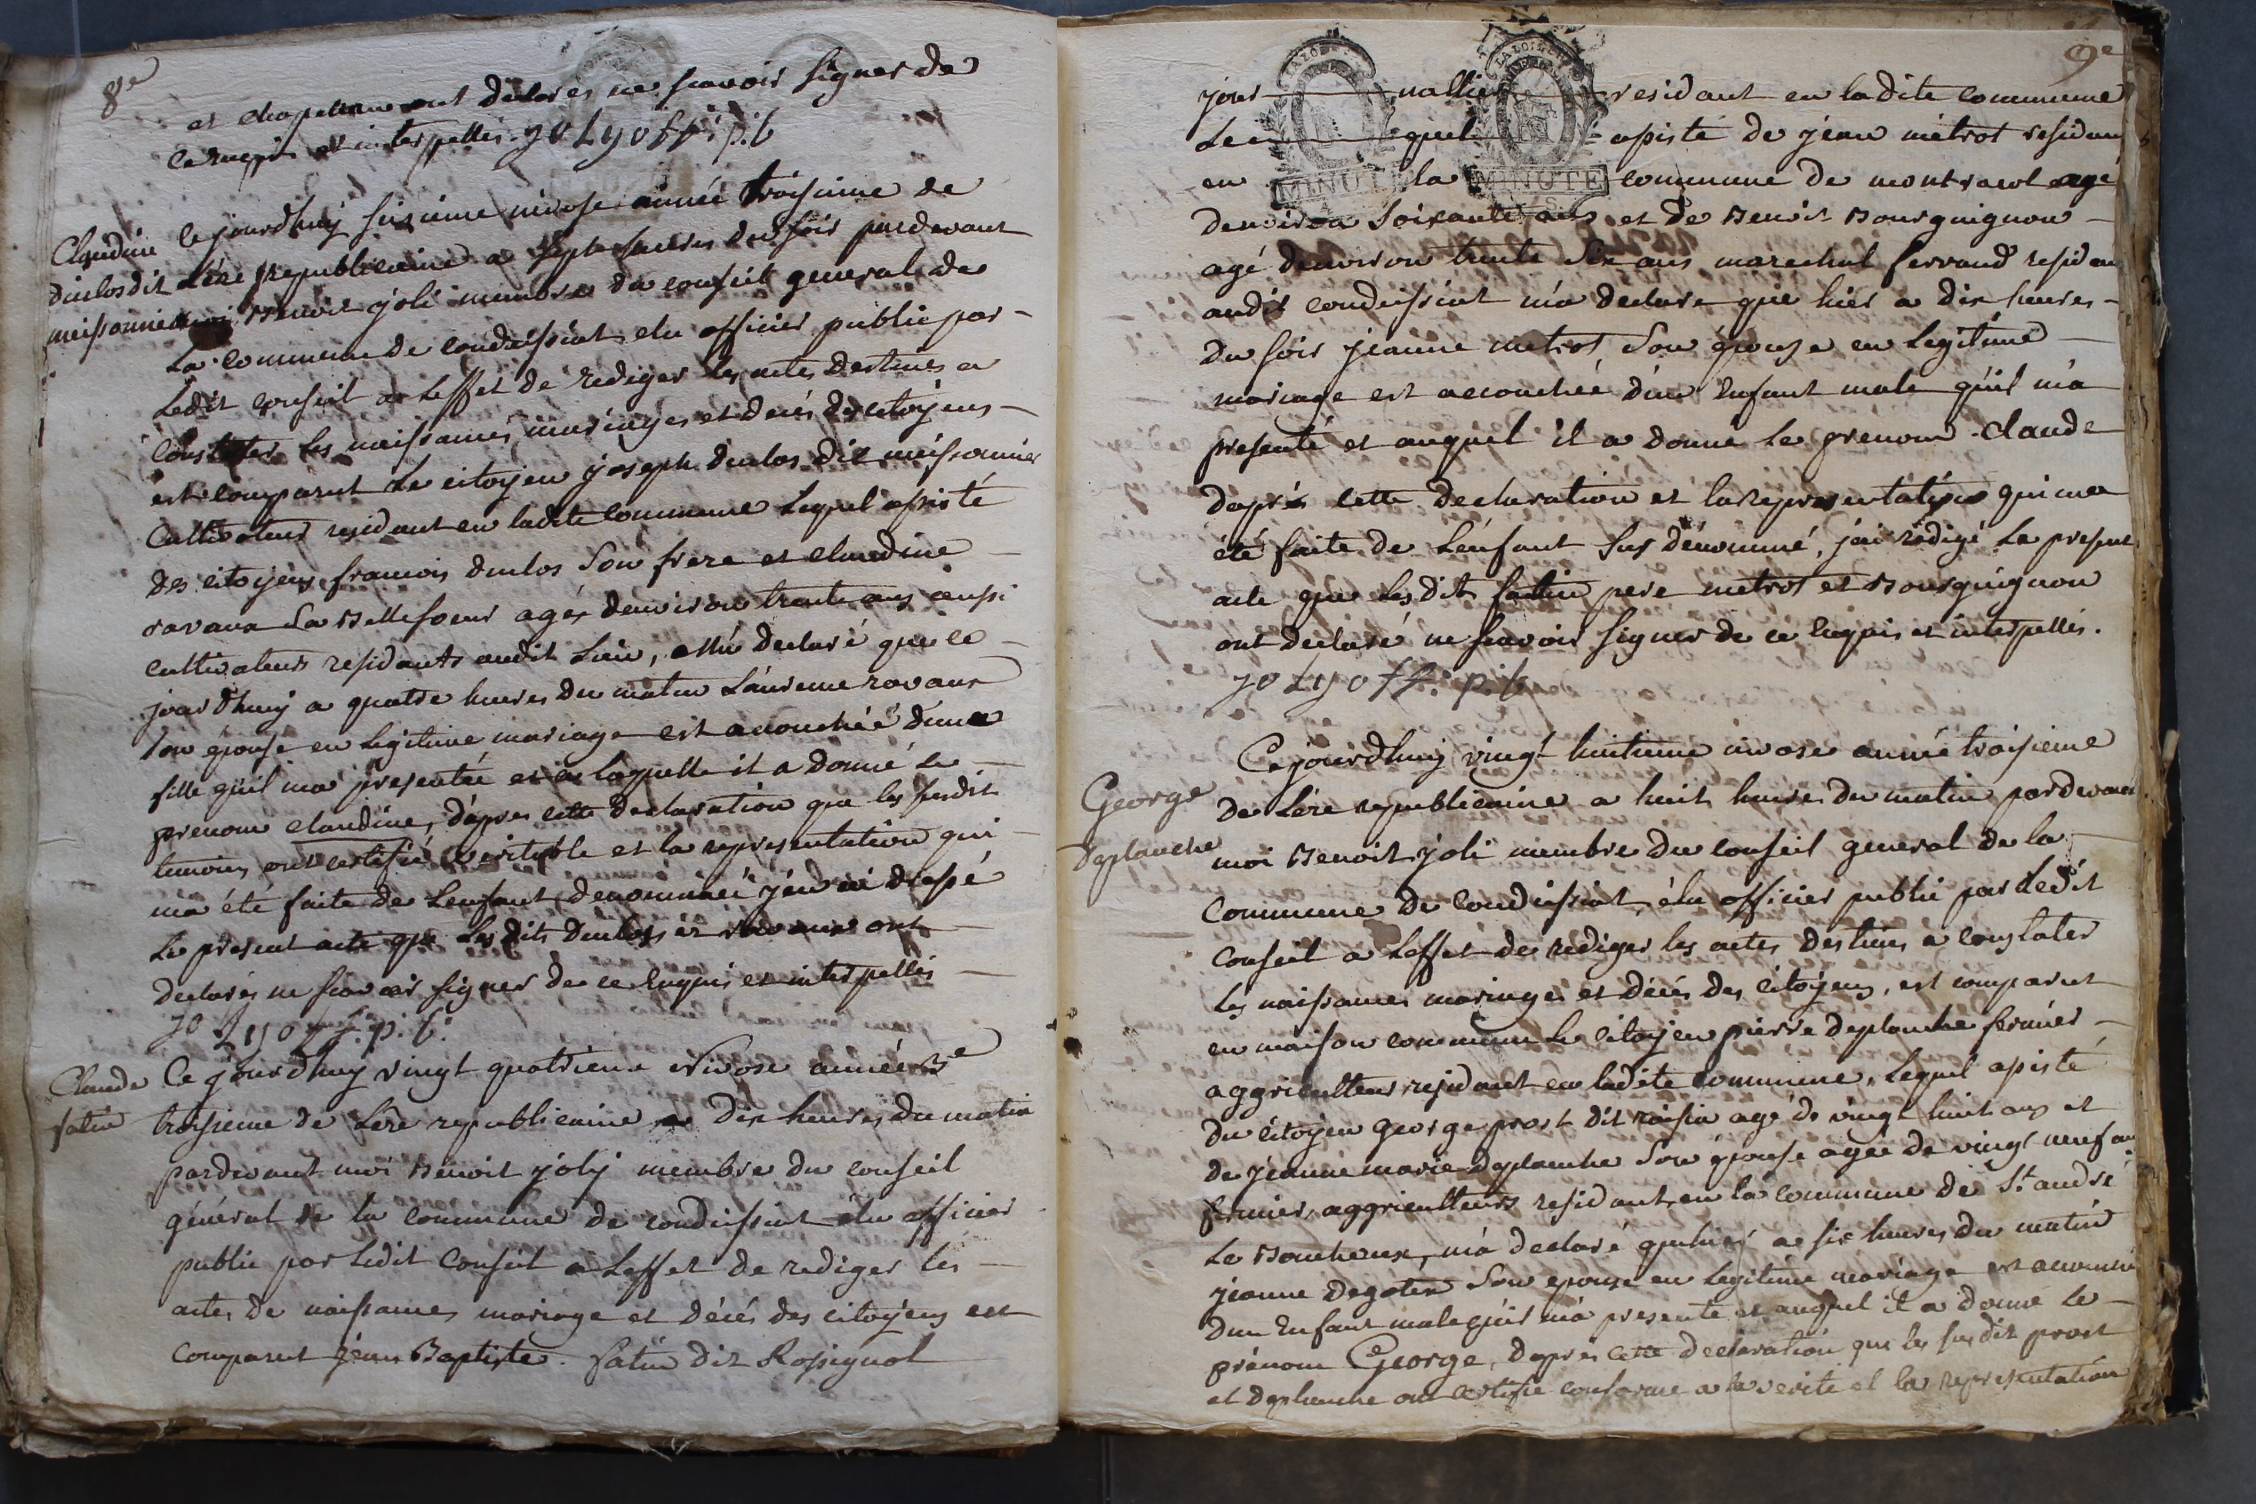 8e
et chapellan ont declarés ne scavoir signer de
ce enquis et interpellés. joly off: p:b
Claudine
duclos dit
meissonnier
Cejourdhuy sixieme nivose année troisieme de
L'ére republicaine a sept heures du soir pardevant
moi Benoit joli membre du conseil general de
La commune de condeissiat elu officier public par
Ledit conseil a Leffet de rediger les actes destinés a
Constater les naissances mariages et decés des citoyens
est comparut Le citoyen joseph duclos dit meissonnier
Cultivateur residant en ladite commune Lequel assisté
des citoyens francois duclos Son frere et claudine
ravaux Sa Bellesoeur agés denviron trente ans aussi
cultivateurs residants audit Lieu, a m'a declaré que ce
jourdhuy a quatre heures du matin Laurence ravaux
son épouse en legitime mariage est acouchée dune
fille quil ma presentée et a laquelle il a donné Le
prenom claudine, d'apres cette declaration que les susdit
temoins ont certifié veritable et la representation qui
ma été faite de Lenfant denommée j'en ai dressé
Le present acte que Lesdits Duclos et ravaux ont
declarés ne scavoir signer de ce Enquis et interpellés
joly off. p. b:
Claude
fatin
Ce jourdhuy vingt quatrieme Nivose année 3e
troisieme de L'ére republicaine a dix heures du matin
pardevant moi Benoit joly membre du conseil
général de la commune de condeissiat élu officier
public par Ledit Conseil a Leffet de rediger les
actes de naissances mariage et décés des citoyens est
comparut jean Baptiste fatin dit Rossignol
9e
jour nallier residant en ladite commune
Le quel assisté de jean métrot residant
en la commune de montracol agé
denviron soixante ans et de Benoit Bourguignon
agé denviron trente Six ans marechal ferrand residan
audit condeissiat m'a declare que hier a dix heures
du soir jeanne metrot Son épouse en Legitime
mariage est accouchée d'un Enfant male quil m'a
presenté et auquel il a donné Le prenom Claude
d'aprés cette declaration et la representation qui ma
été faite de L'enfant sus dénommé, j'ai rédigé Le present
acte que Lesdits fatin pere metrot et Bourguignon
ont declaré ne scavoir signer de ce Enquis et interpellés.
joly off: p:b
LA LOI
LA LOI
MINUTE
MINUTE
George
Deplanche
Cejourdhuy vingt huitieme nivose année troisieme
de L'ére republicaine a huit heures du matin pardevant
moi Benoit joli membre du conseil general de la
Commune de condeissiat, élu officier public par Ledit
Conseil a Leffet de rediger les actes destinés a constater
Les naissances mariages et décés des Citoyens, est comparut
en maison commune Le citoyen pierre deplanche fermier
aggriculteur residant en ladite commune, Lequel assisté
du citoyen George prost dit raisin agé de vingt huit ans et
de jeanne marie deplanche Son épouse agée de vingt neuf ans
fermiers aggriculteurs residant en la commune de St andré
Le Bouchoux, m'a declaré quhier a six heures du matin
jeanne Son epouse en Legitime mariage est accouché
dun Enfant male quil m'a presente et auquel il a donne Le
prénom George, dapres cette declaration que les susdit prost
et deplanche ont certifie conforme a la verité et la representation